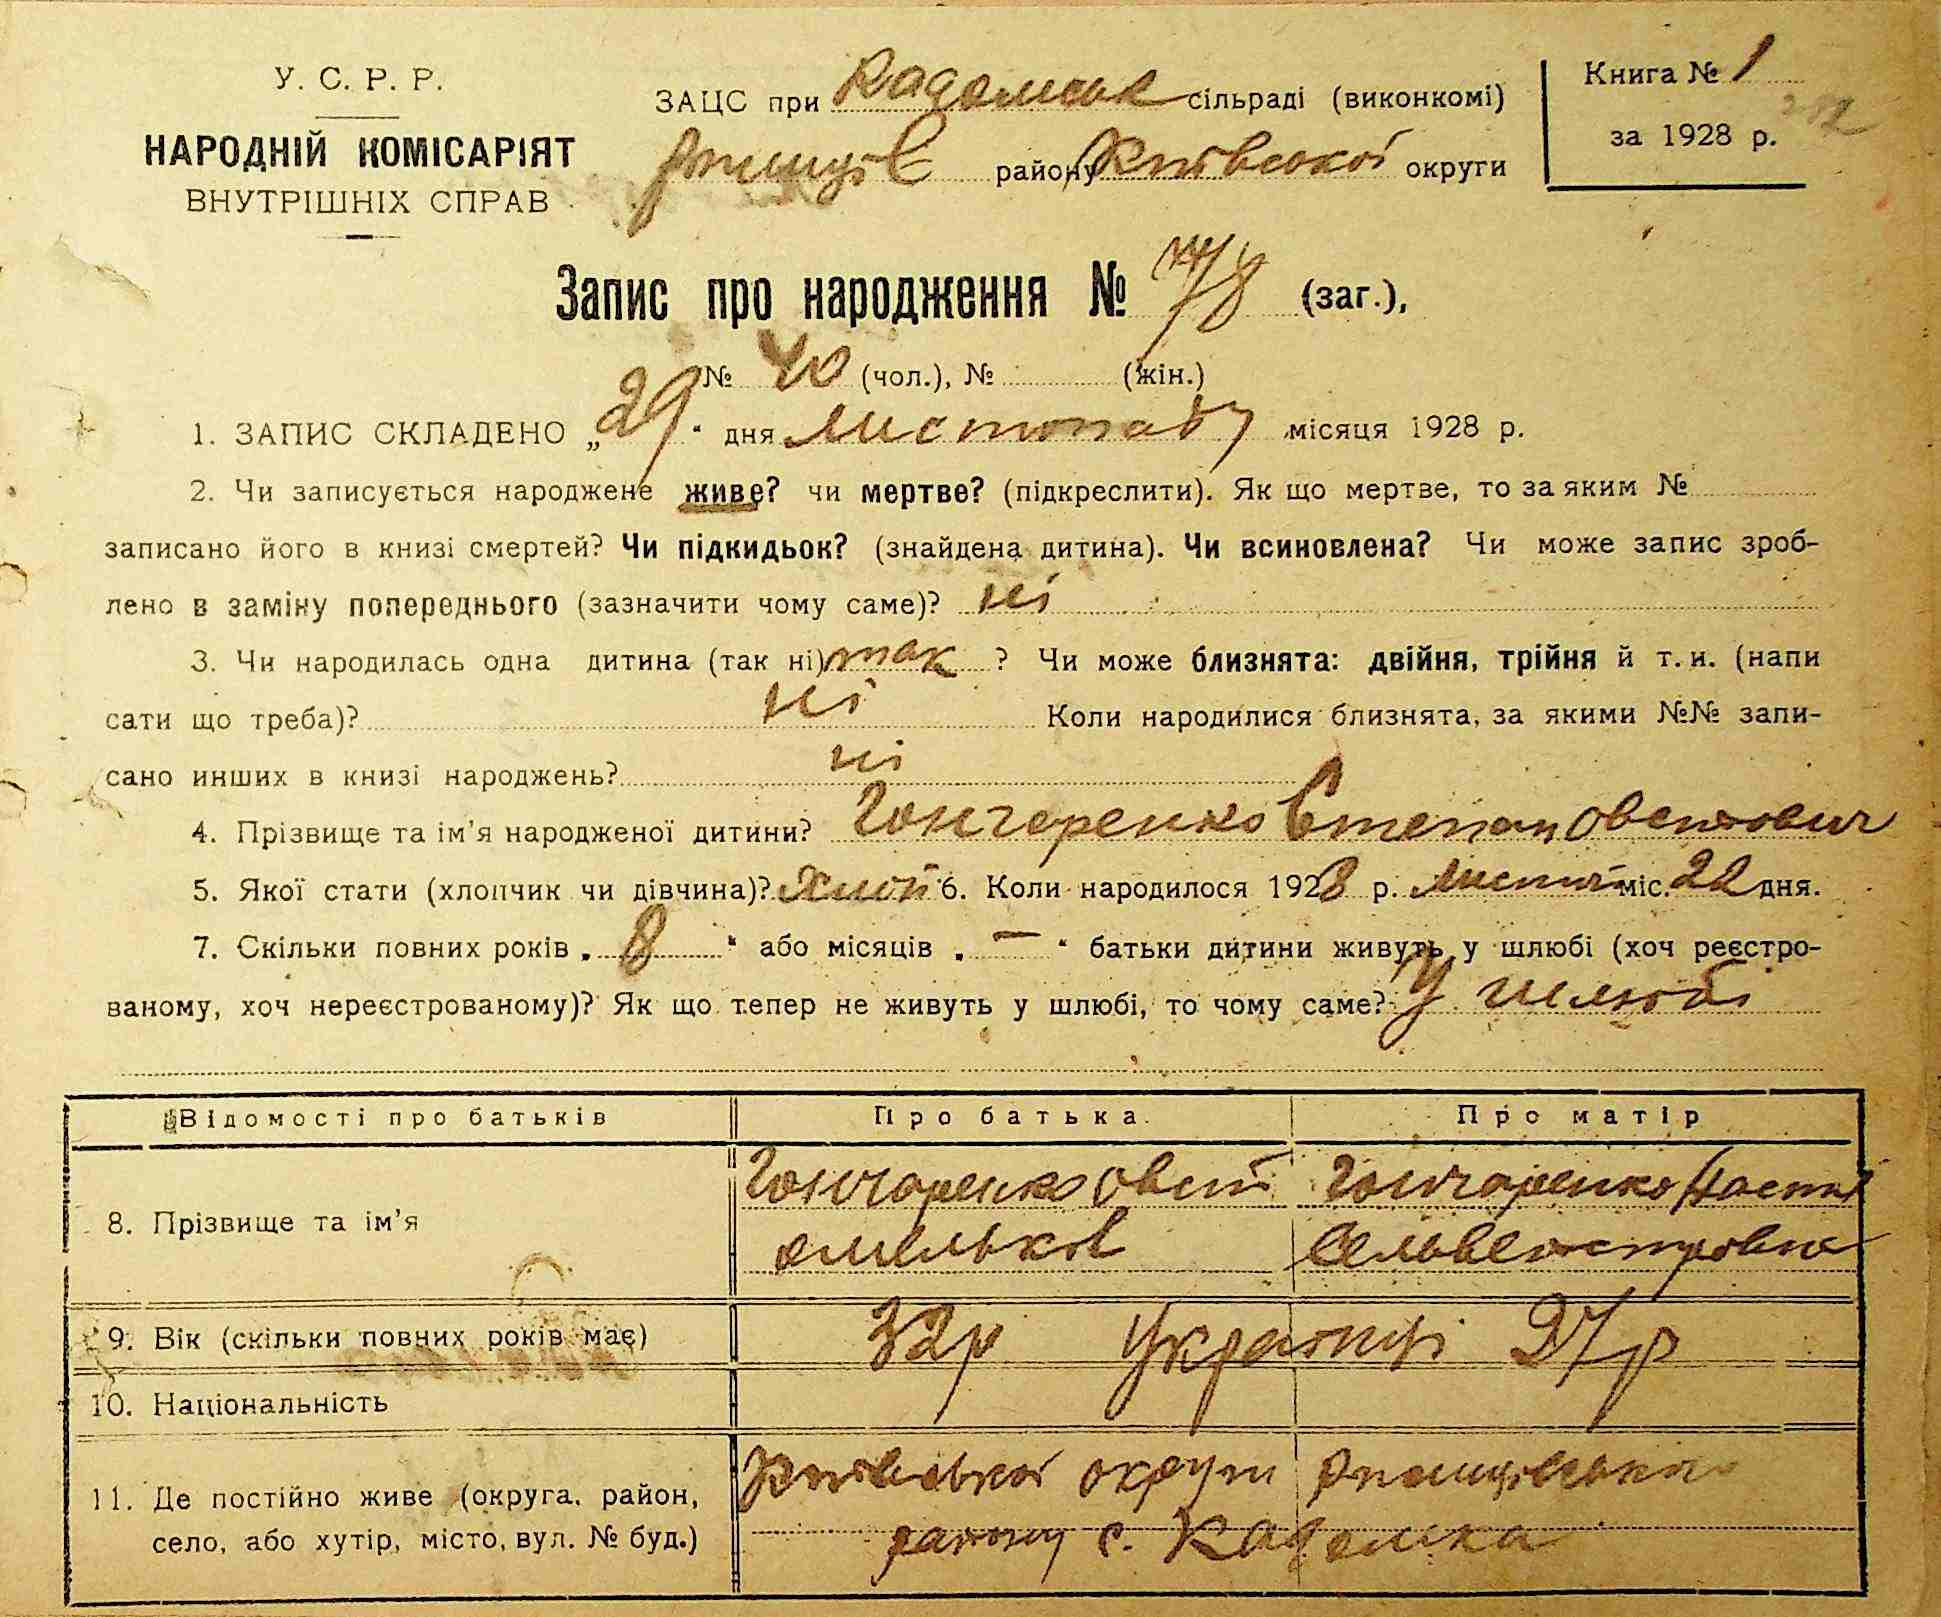 У. С. Р. Р.
НАРОДНІЙ КОМІСАРІЯТ
ВНУТРІШНІХ СПРАВ
ЗАЦС при Кадомськ сільраді (виконкомі)
Ржищів району Київської округи
Книга № 1
за 1928 р.
Запис про народження № 78 (заг.),
№ 40 (чол.), № (жін.)
1. ЗАПИС СКЛАДЕНО „29“ дня листопаду місяця 1928 р.
2. Чи записується народжене живе? чи мертве? (підкреслити). Як що мертве, то за яким №
записано його в книзі смертей? Чи підкидьок? (знайдена дитина). Чи всиновлена? Чи може запис зроб-
лено в заміну попереднього (зазначити чому саме)? ні
3. Чи народилась одна дитина (так ні) так ? Чи може близнята: двійня, трійня й т. и. (напи
сати що треба)? ні Коли народилися близнята, за якими №№ запи-
сано инших в книзі народжень? ні
4. Прізвище та ім’я народженої дитини? Гончаренко Степан Овситович
5. Якої стати (хлопчик чи дівчина)? Хлоп 6. Коли народилося 1928 р. листоп міс. 22 дня.
7. Скільки повних років „ 8 “ або місяців „ — “ батьки дитини живуть у шлюбі (хоч реєстро-
ваному, хоч нереєстрованому)? Як що тепер не живуть у шлюбі, то чому саме? У шлюбі
Відомості про батьків Про батька Про матір
8. Прізвище та ім’я Гончаренко Овсій Гончаренко Настя
омельков Сельвестровна
9. Вік (скільки повних років має) 32р Українці 27р
10. Національність
11. Де постійно живе (округа, район, Київської округи Ржищівського
село, або хутір, місто, вул. № буд.) району с. Кадомка